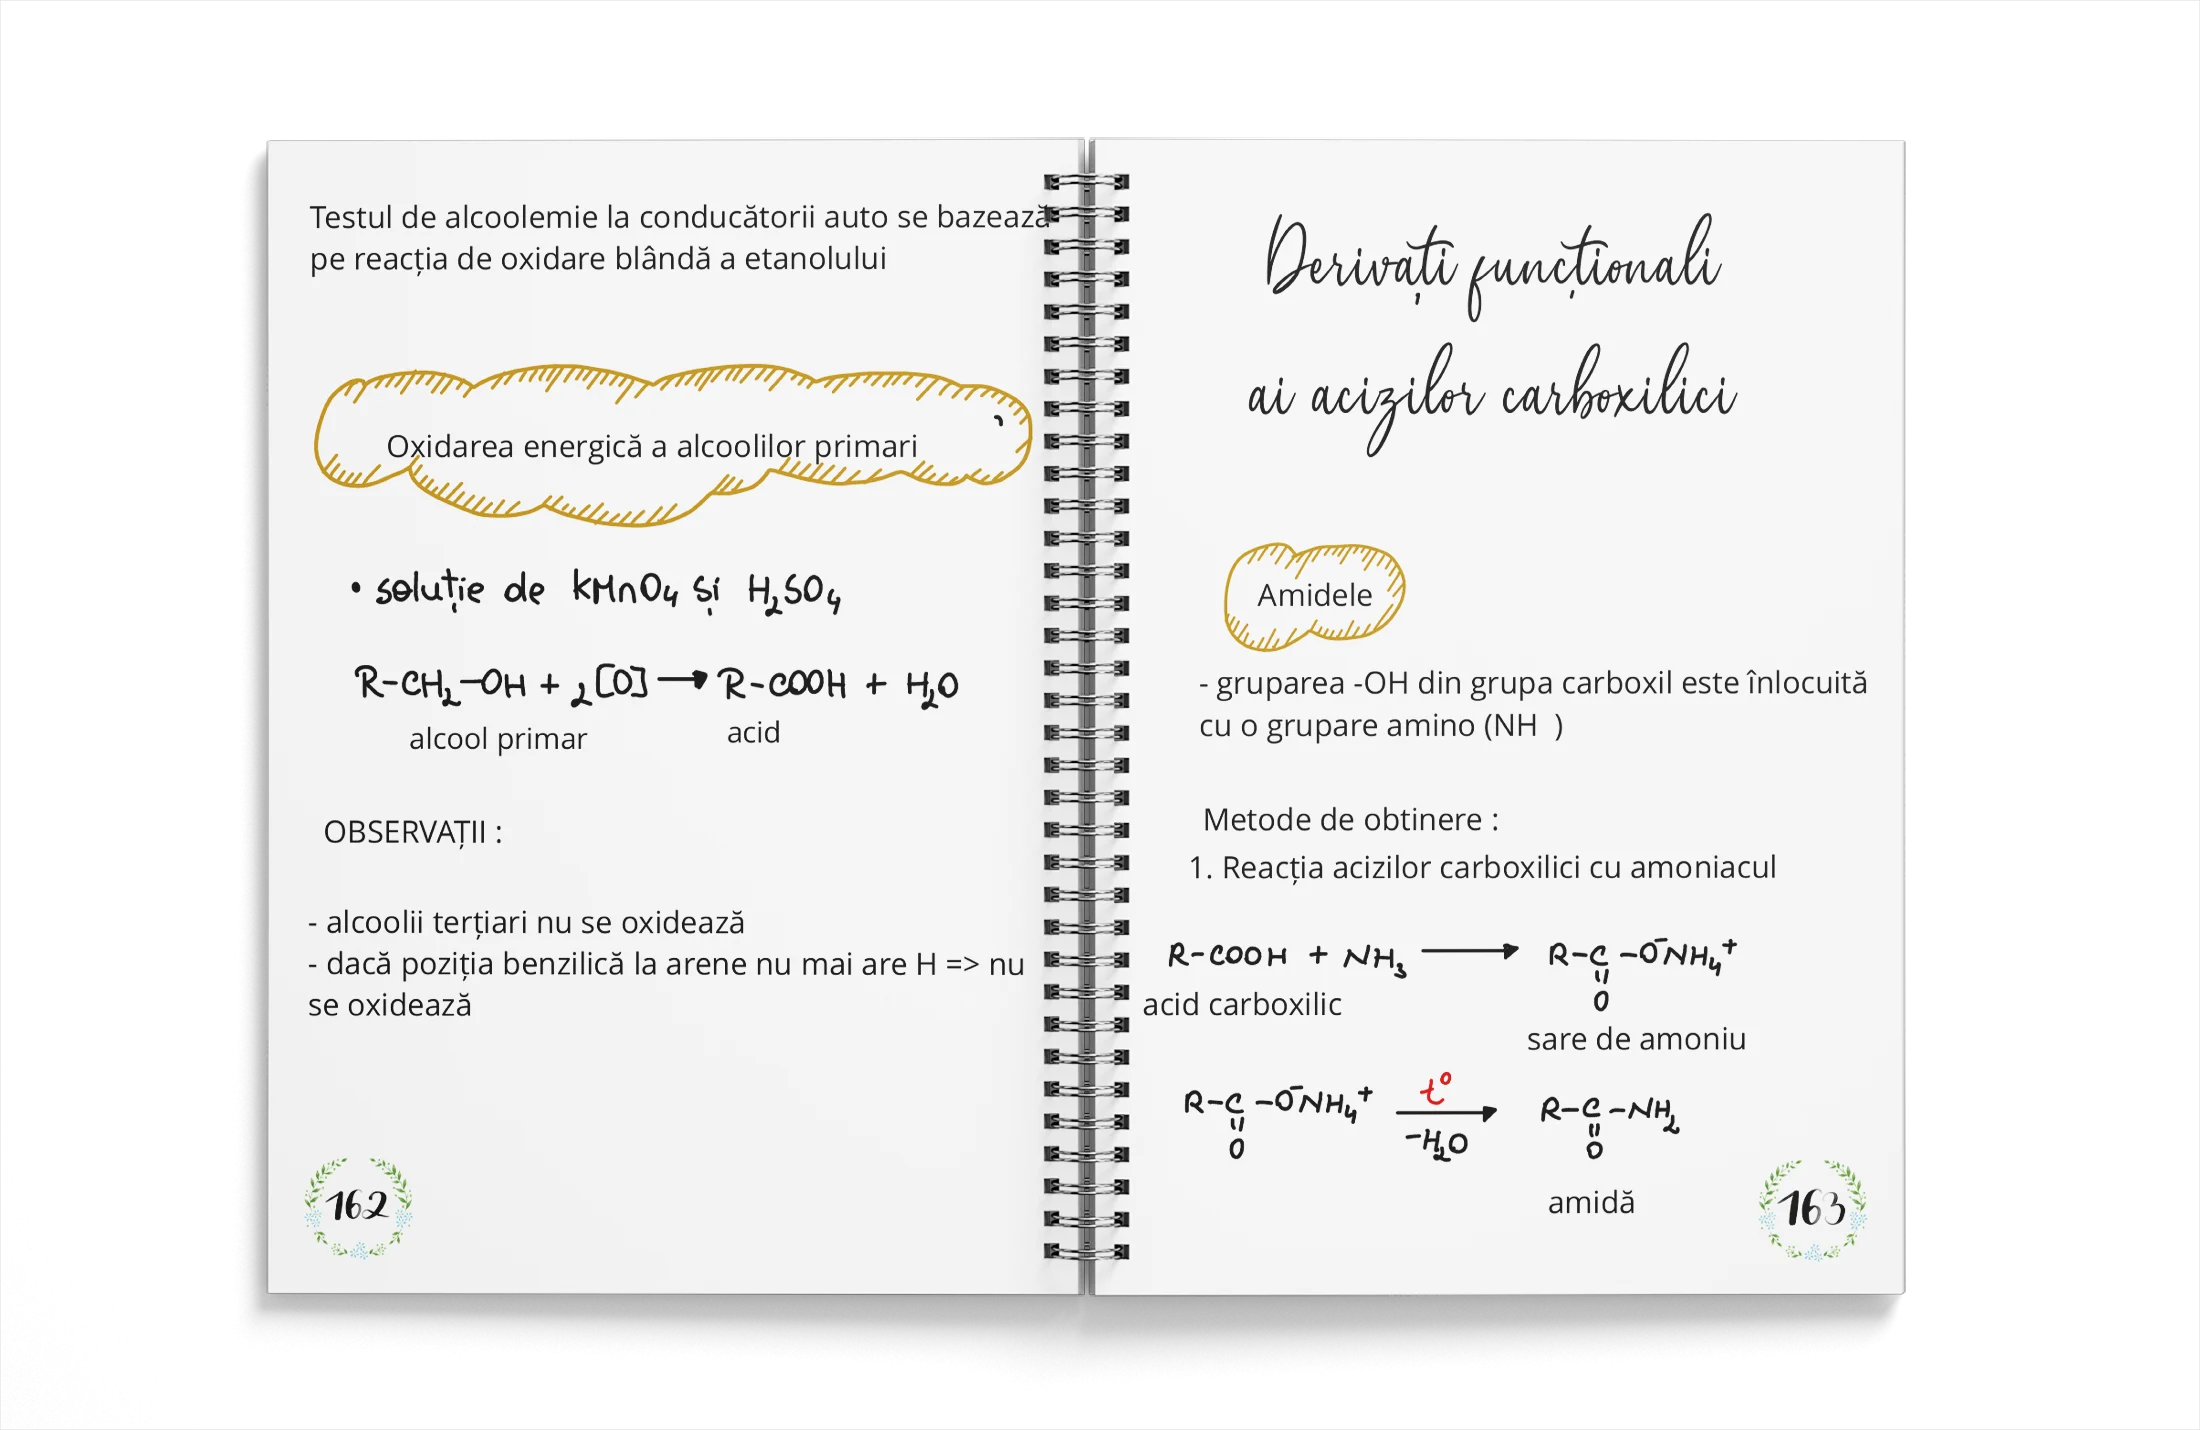 Testul de alcoolemie la conducătorii auto se bazează
pe reacția de oxidare blândă a etanolului
Oxidarea energică a alcoolilor primari
• soluție de KMnO₄ și H₂SO₄
R-CH₂-OH + 2[O] → R-COOH + H₂O
alcool primar acid
OBSERVAȚII :
- alcoolii terțiari nu se oxidează
- dacă poziția benzilică la arene nu mai are H => nu
se oxidează
162
Derivați funcționali
ai acizilor carboxilici
Amidele
- gruparea -OH din grupa carboxil este înlocuită
cu o grupare amino (NH )
Metode de obtinere :
1. Reacția acizilor carboxilici cu amoniacul
R-COOH + NH₃ → R-C-O⁻NH₄⁺
=
O
acid carboxilic
sare de amoniu
R-C-O⁻NH₄⁺ t° → -H₂O R-C-NH₂
= =
O O
amidă
163